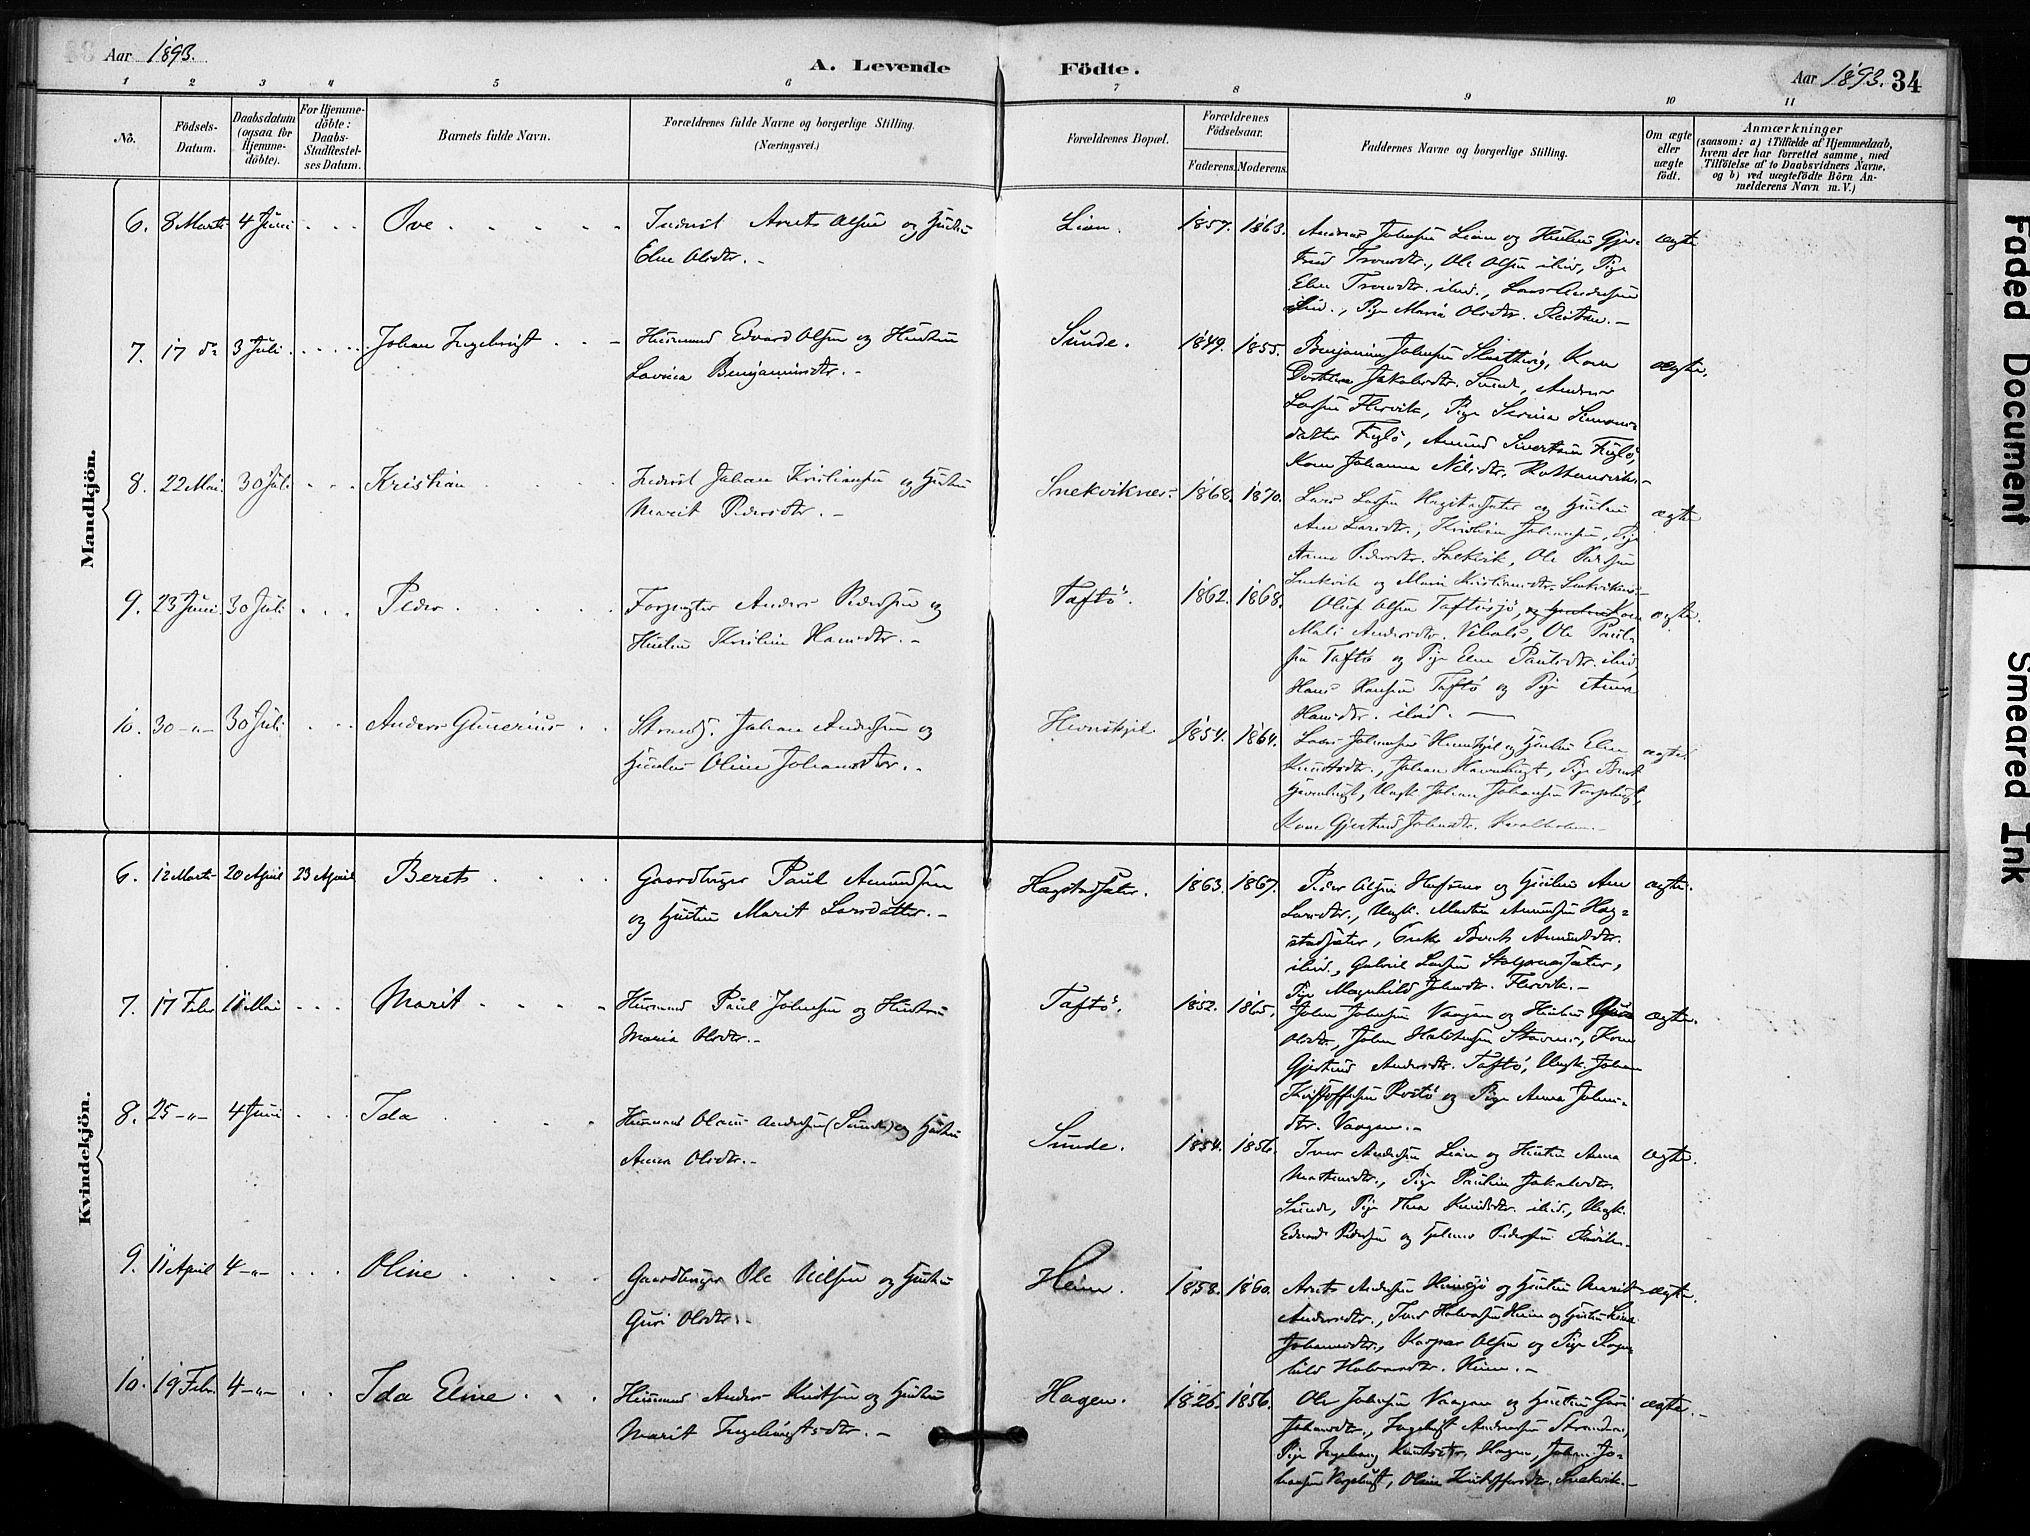 Aar 1893.
A. Levende Födte.
Aar 1893. 34
1 2 3 4 5 6 7 8 9 10 11
No.
Födsels-Datum.
Daabsdatum (ogsaa for Hjemme-döbte).
For Hjemme-döbte: Daabs-Stadfæstel-ses Datum.
Barnets fulde Navn.
Forældrenes fulde Navne og borgerlige Stilling.
(Næringsvei.)
Forældrenes Bopæl.
Forældrenes Födselsaar.
Faderens. Moderens.
Faddernes Navne og borgerlige Stilling.
Om ægte eller uægte födt.
Anmærkninger
(saasom: a) i Tilfælde af Hjemmedaab,
hvem der har forrettet samme, med
Tilföielse af to Daabsvidners Navne,
og b) ved uægtefödte Börn An-
melderens Navn m. V.)
Mandkjön.
6. 8 Marts 4 Juni Ove Arnt Olsen og Hustru
Elen Olsdtr. Lian. 1857. 1863. ægte
Andreas Johnsen Lian og Hustru Gjer-
trud Trondtr., Ole Olsen ibid, Pige
Elen Trondtr. ibid., Lars Andersen
ibid., Pige Maria Olsdtr.
7. 17 do 3 Juli Johan Ingebrigt Husmand Edvard Olsen og Hustru
Lovisa Benjaminsdtr. Sunde. 1849. 1855. ægte.
Benjamin Johnsen, Kone
Dorthea Jakobsdtr. Sunde, Anders
Larsen Flesvik, Pige Serina Simons-
datter Fuglö, Amund Sivertsen Fuglö,
Kone Johanna Nilsdtr.
8. 22 Mai 30 Juli Kristian Inderst Johan Kristiansen og Hustru
Marit Pedersdtr. Snekviknes. 1868. 1870. ægte
Lars Larsen Hagstadsæter og Hustru
Ane Larsdtr., Kristian Johansen, Pige
Anne Pedersdtr. Snekvik, Ole Pedersen
Snekvik og Marie Kristiansdtr. Snekviknes
9. 23 Juni 30 Juli Peder Forpagter Anders Pedersen og
Hustru Kristine Hansdtr. Taftö. 1862. 1868. ægte.
Oluf Olsen Taftösjö, Kone
Mali Andersdtr., Ole Paul-
sen Taftö og Pige Elen Paulsdtr. ibid,
Hans Hansen Taftö og Pige Anna
Hansdtr. ibid.
10. 30 -"- 30 Juli Anders Gunerius Strands. Johan Andersen og
Hustru Oline Johansdtr. Hevnskjel. 1854. 1864. ægte.
Lars Johansen Hevnskjel og Hustru Elen
Knutsdtr., Johan, Pige Berit
Ungk. Johan Johansen
Kone Gjertrud Johnsdtr.
Kvindekjön.
6. 12 Marts 20 April 23 April Berit Gaardbruger Paul Amundsen
og Hustru Marit Larsdatter. Hagstadsæter. 1863. 1867. ægte.
Peder Olsen og Hustru Ane
Larsdtr., Ungk. Martin Amundsen Hag-
stadsæter, Enke Berit Amundsdtr.
ibid., Gabriel Larsen,
Pige Magnhild Johnsdtr. Flesvik.
7. 17 Febr 11 Mai Marit Husmand Paul Johnsen og Hustru
Maria Olsdtr. Taftö. 1852. 1865. ægte.
John Johnsen Vaagan og Hustru
Olsdtr., John, Kone
Gjertrud Andersdtr. Taftö, Ungk. Johan
Kristoffersen og Pige Anna Johns-
dtr. Vaagan.
8. 25 -"- 4 Juni Ida Husmand Olaus Andersen (Sunde) og Hustru
Anna Olsdtr. Sunde. 1854. 1856. ægte.
Iver Andersen Lian og Hustru Anna
Martinsdtr., Pige Pauline Jakobsdtr.
Sunde, Pige Thea Knudsdtr. ibid., Ungk.
Edvard Pedersen og Hjelmer Pedersen
9. 11 April 4 -"- Oline Gaardbruger Ole Nilsen og Hustru
Guri Olsdtr. Heim. 1858. 1860. ægte.
Arnt Andersen Heimsjö og Hustru Marit
Andersdtr., Iver Halvorsen Heim og Hustru
Johannesdtr., Kaspar Olsen og Pige Ragn-
hild Halvorsdtr. Heim.
10. 19 Febr. 4 -"- Ida Eline Husmand Anders Knutsen og Hustru
Marit Ingebrigtsdtr. Hagen. 1826. 1856. ægte.
Ole Johnsen Vaagan og Hustru Guri
Johansdtr., Ingebrigt Andersen Stranden,
Pige Ingeborg Knutsdtr. Hagen, Johan Jo-
hansen, Oline Kristoffersdtr. Snekvik.
Faded Document
Smeared Ink